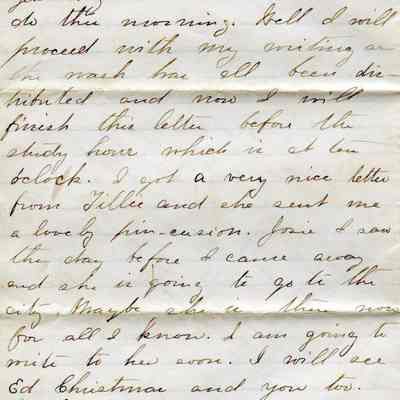 do this morning. Well I will
proceed with my writing as
the wash has all been dis-
tributed and now I will
finish this letter before the
study hour which is at ten
o'clock. I got a very nice letter
from Tillie and she sent me
a lovely pin-cusion. Josie I saw
the day before I came away
and she is going to go to the
city. Maybe she is there now
for all I know. I am going to
write to her soon. I will see
Ed Christmas and you too.